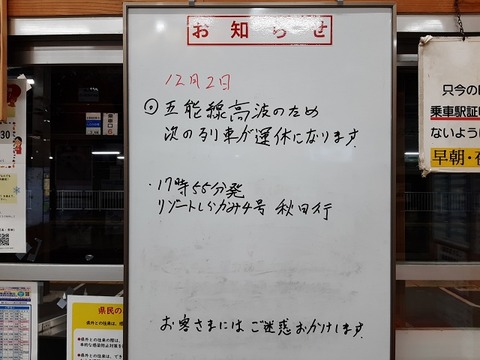 お知らせ
12月2日
◎五能線高波のため
次の列車が運休になります
・17時55分発
リゾートしらかみ4号 秋田行
お客さまにはご迷惑おかけします
只今の
乗車駅証
ないように
早朝・
県民の